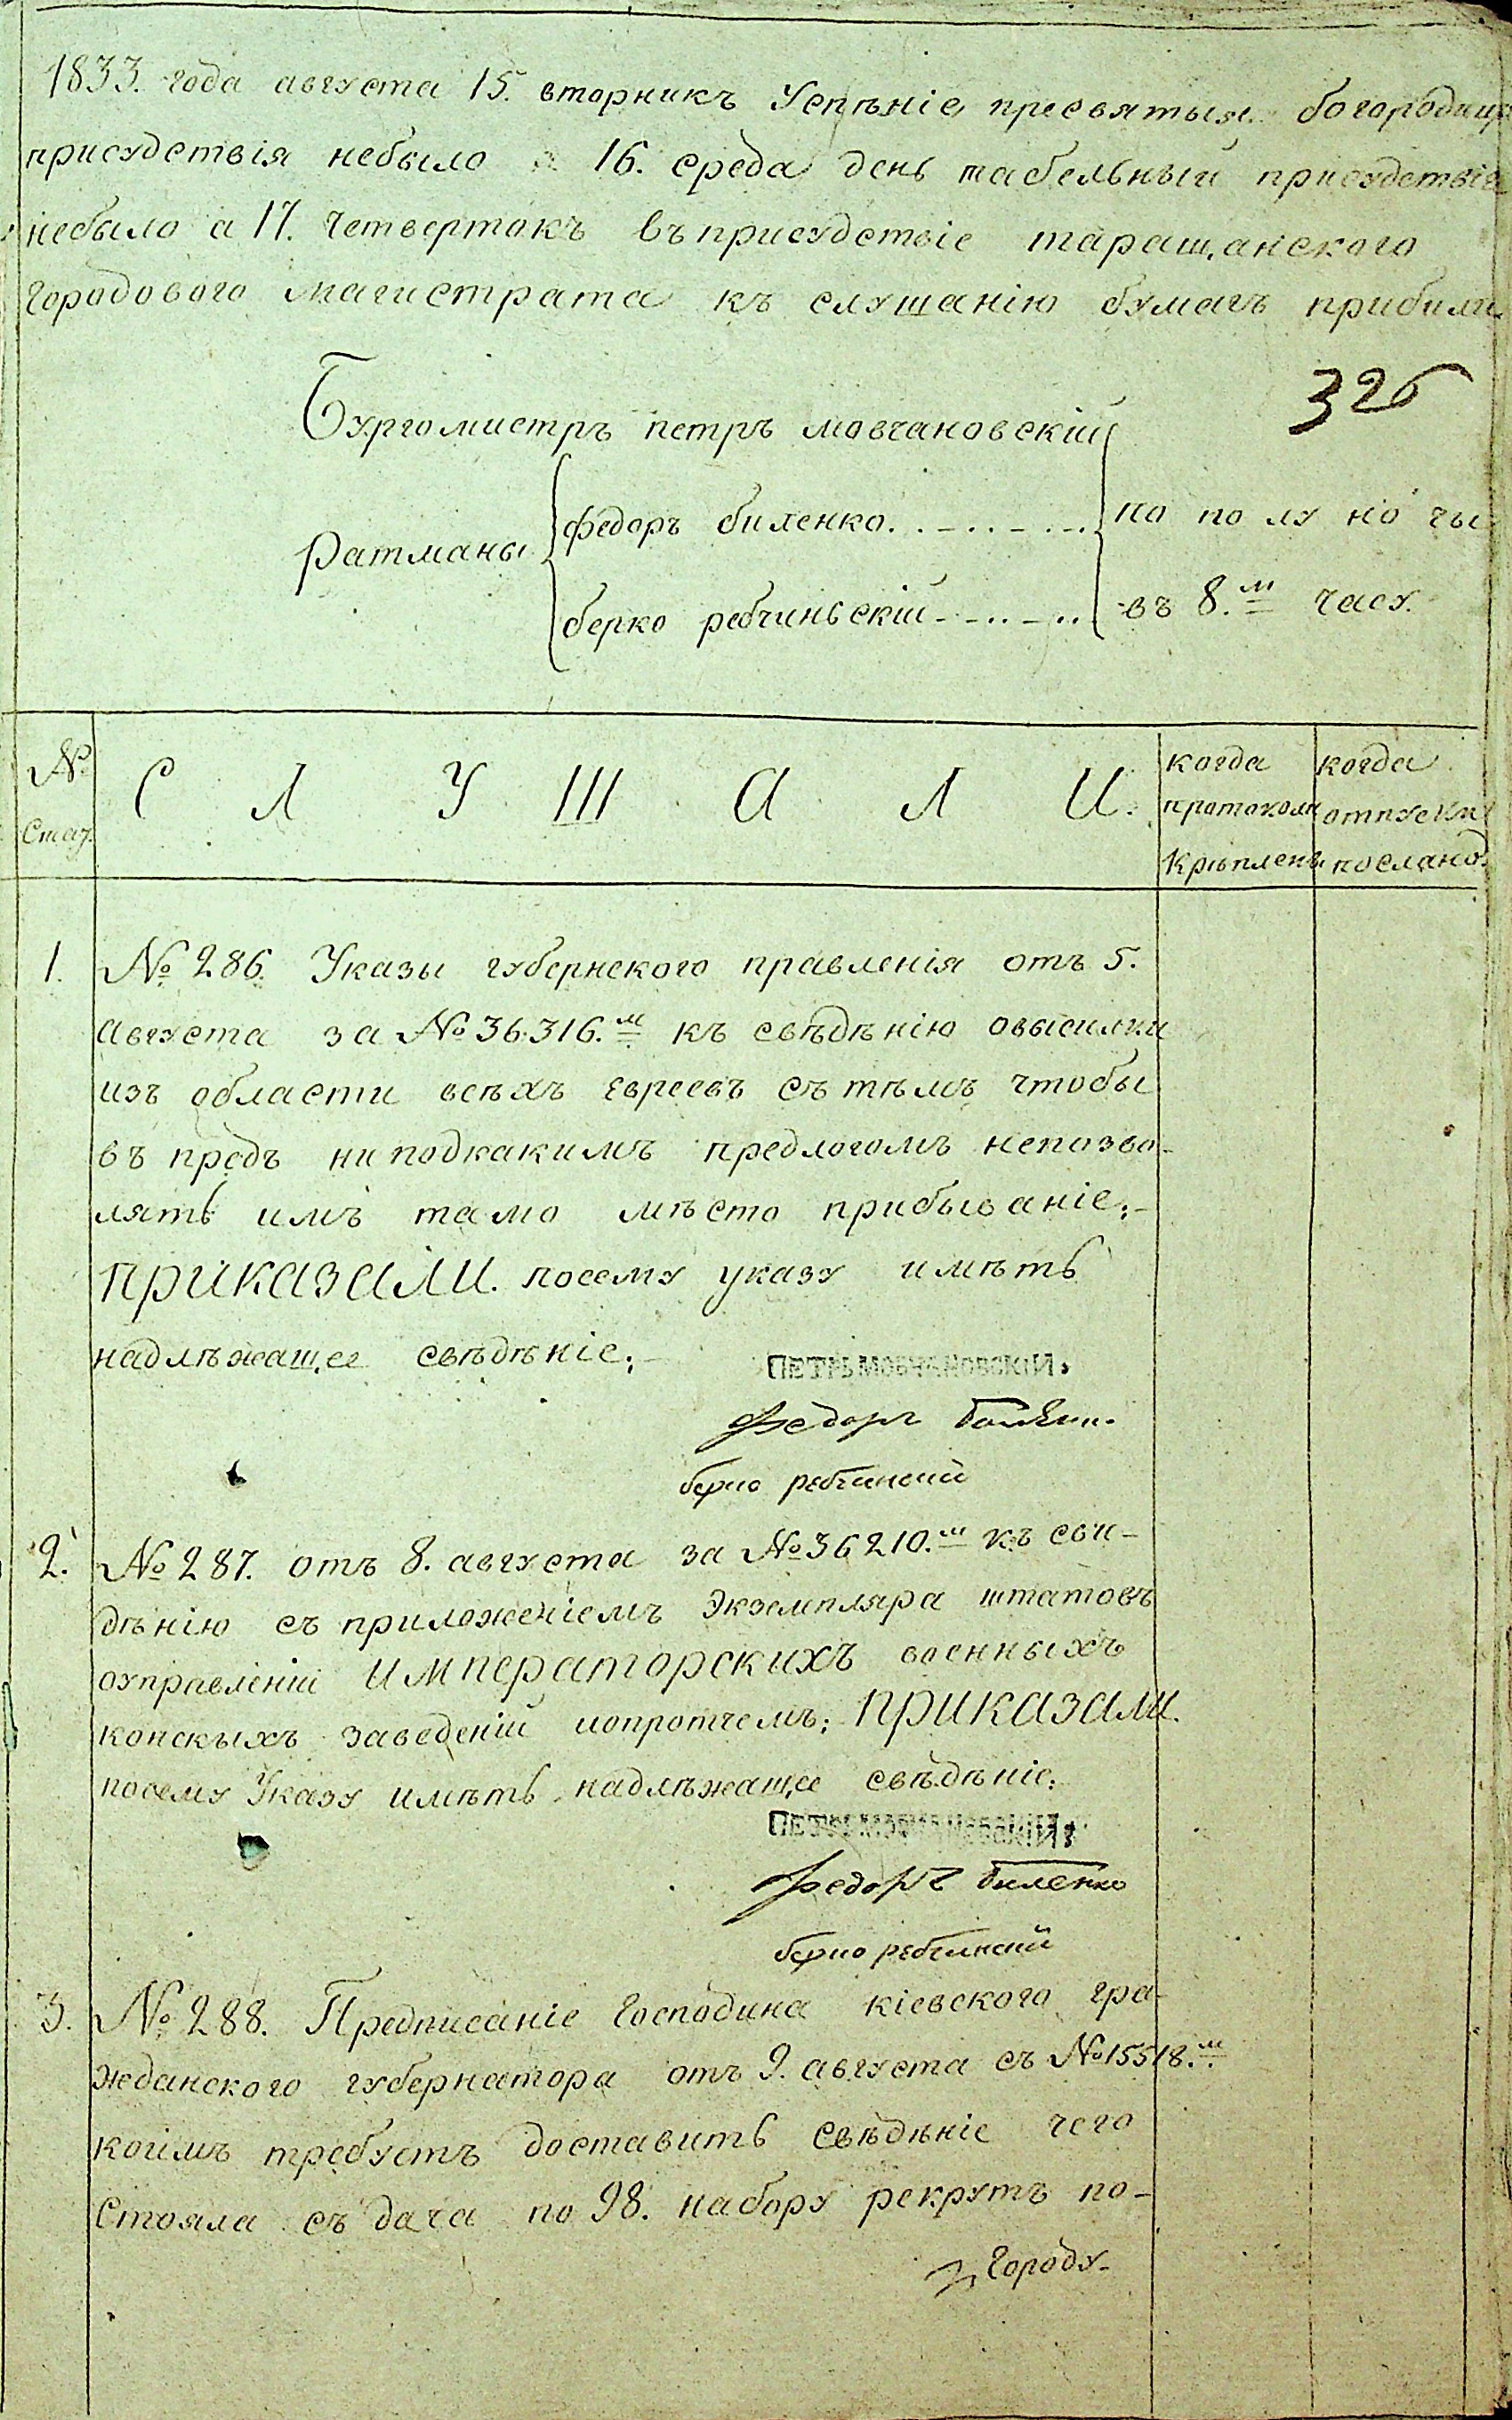 1833. года августа 15. вторникъ Успѣніе пресвятыя богородицы
присудствія небыло а 16. среда день табельный присудствіе
небыло а 17. четвертокъ въ присудствіе таращанского
городового магистрата къ слушанію бумагъ прибили
326
Бургомистръ петръ мовчановскій
Ратманы
федоръ биленко
по полу но чы
берко ребчиньскій
въ 8.м часу.
№ Стат.
С Л У Ш А Л И.
когда протоколъ крѣпленъ
когда отпуски послано.
1. № 286. Указы губернского правленія отъ 5.
августа за № 36.316.м къ свѣдѣнію овысилки
изъ области всѣхъ евреевъ съ тѣмъ чтобы
въ предъ ни подкакимъ предлогомъ непозво-
лять имъ тамо мѣсто прибываніе;-
приказали. посему указу имѣть
надлѣжащее свѣдѣніе;-
ПЕТРЪ МОВЧАНОВСКІЙ.
Федоръ Биленко
берко ребчинский
2. № 287. отъ 8. августа за № 36210.м къ сви-
дѣнію съ приложеніемъ экземпляра штатовъ
оуправленіи императорскихъ военныхъ
конскыхъ заведеній иопротчемъ; приказали.
посему Указу имѣть надлѣжащее свѣдѣніе;-
ПЕТРЪ МОВЧАНОВСКІЙ.
Федоръ Биленко
берко ребчинский
3. № 288. Предписаніе Господина кіевского гра-
жданского губернатора отъ 9. августа съ № 15518.м
коимъ требуетъ доставить свѣдѣніе чего
Стояла съ дача по 98. набору рекрутъ по-
городу-